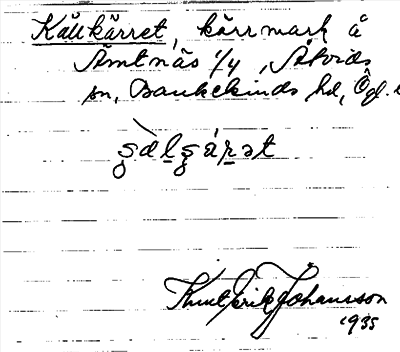 Källkärret, kärrmark å
Ämtnäs 1/4, Åtvids
sn, Bankekinds hd, Ögl.
Knut Erik Johansson
1935